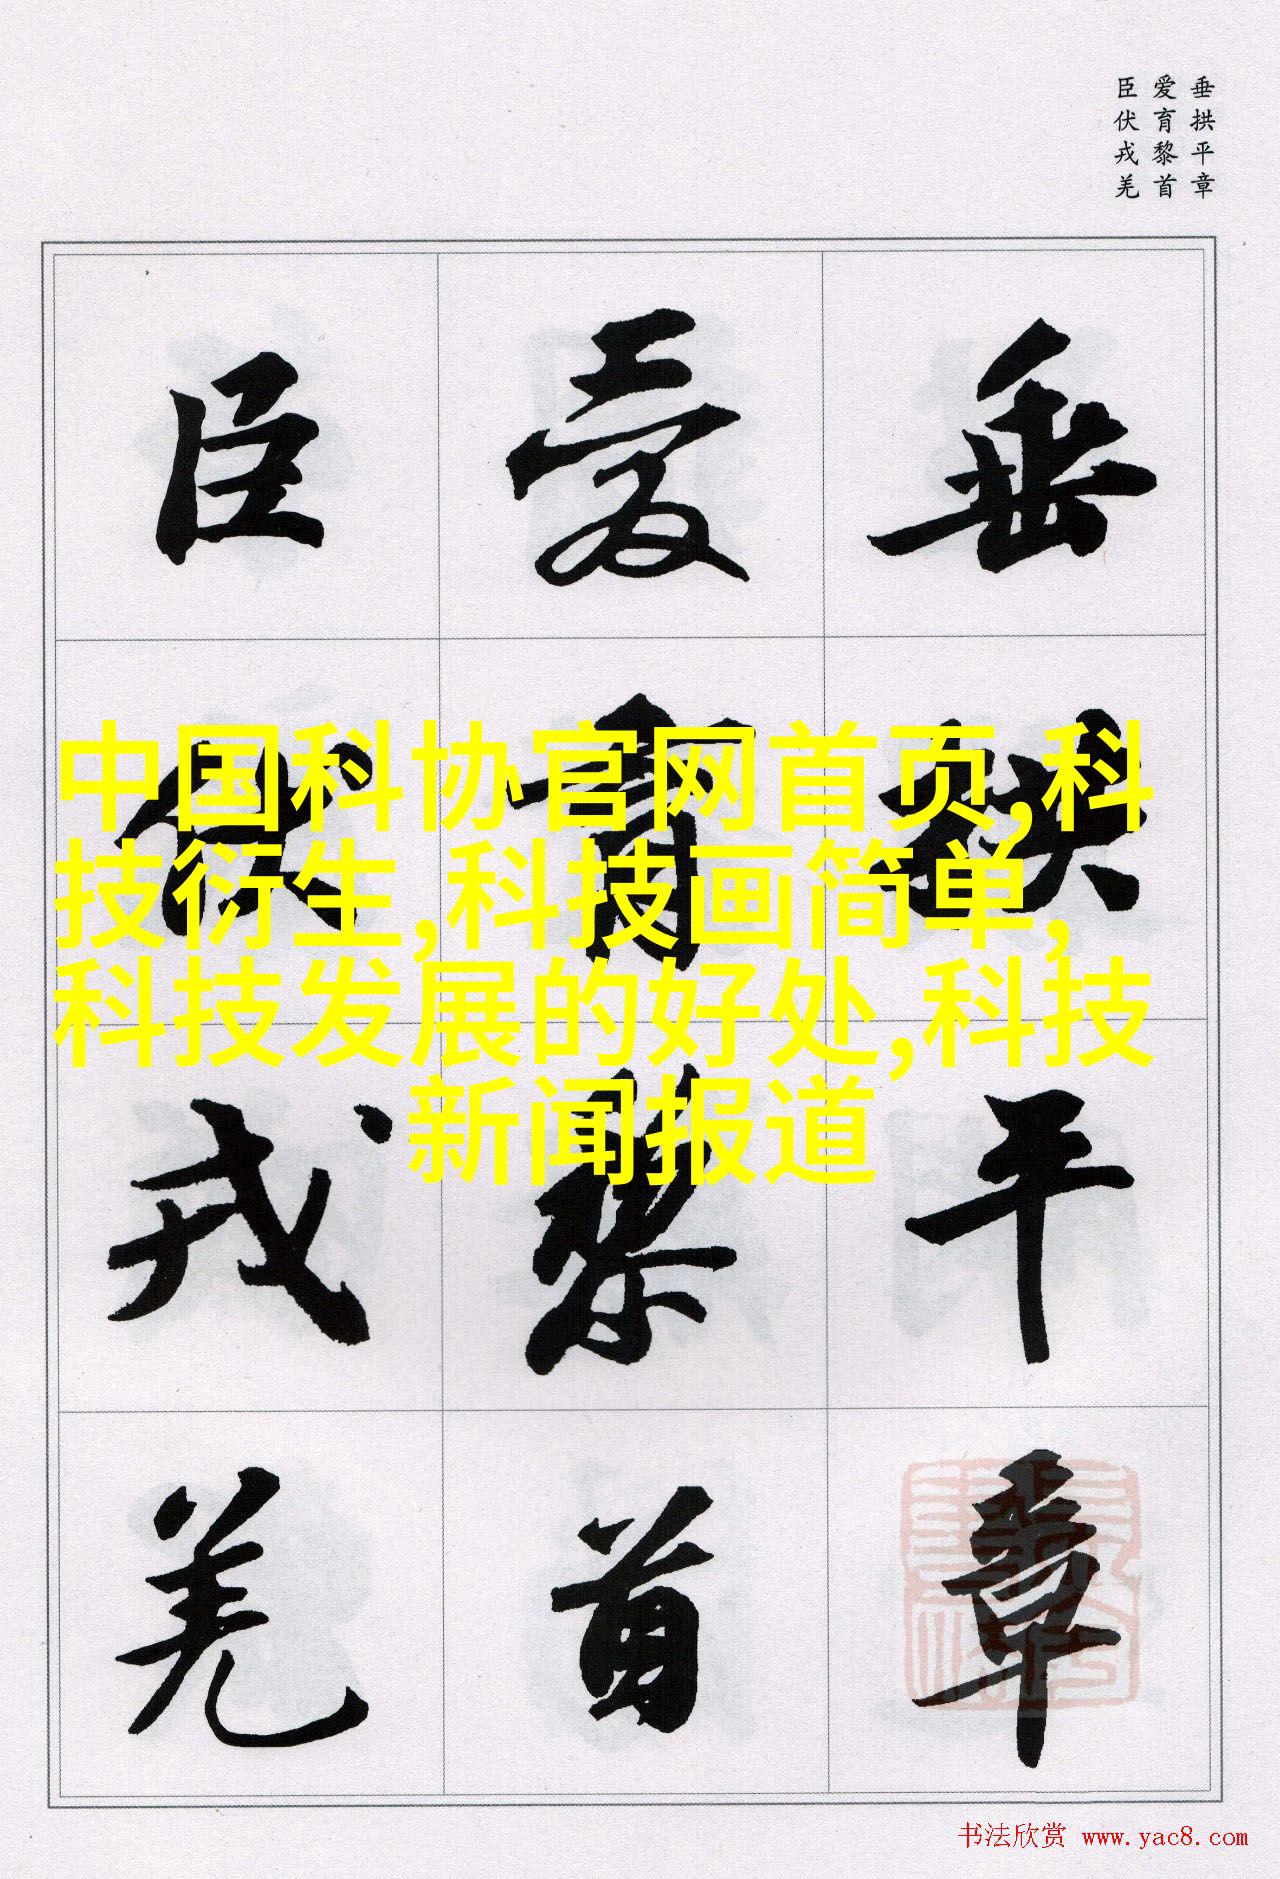 垂拱平章
爱育黎首
臣伏戎羌
垂拱平章
爱育黎首
臣伏戎羌
中国科协官网首页,科
技衍生,科技画简单,
科技发展的好处,科技
新闻报道
书法欣赏 www.yac8.com